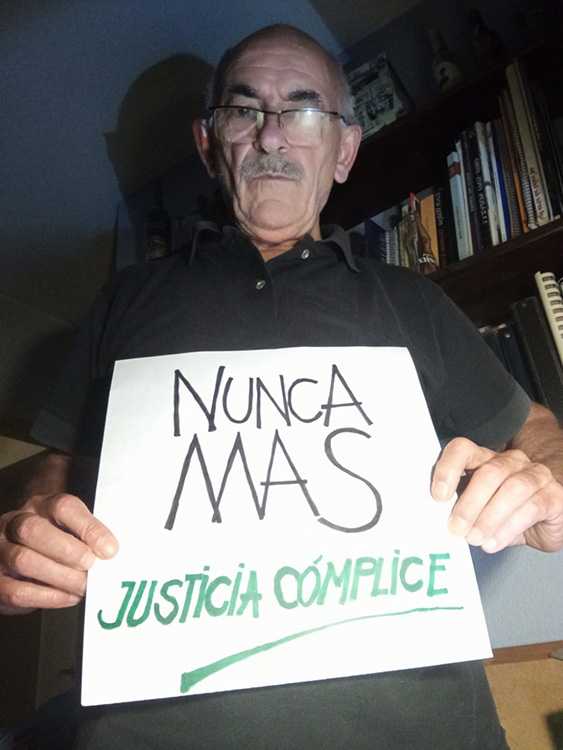 NUNCA
MAS
JUSTICIA CÓMPLICE